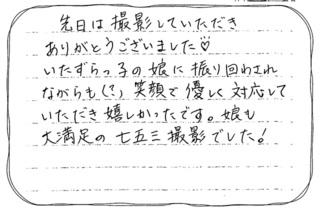 先日は撮影していただき
ありがとうございました♡
いたずらっ子の娘に振り回され
ながらも(?)笑顔で優しく対応して
いただき嬉しかったです。娘も
大満足の七五三撮影でした!